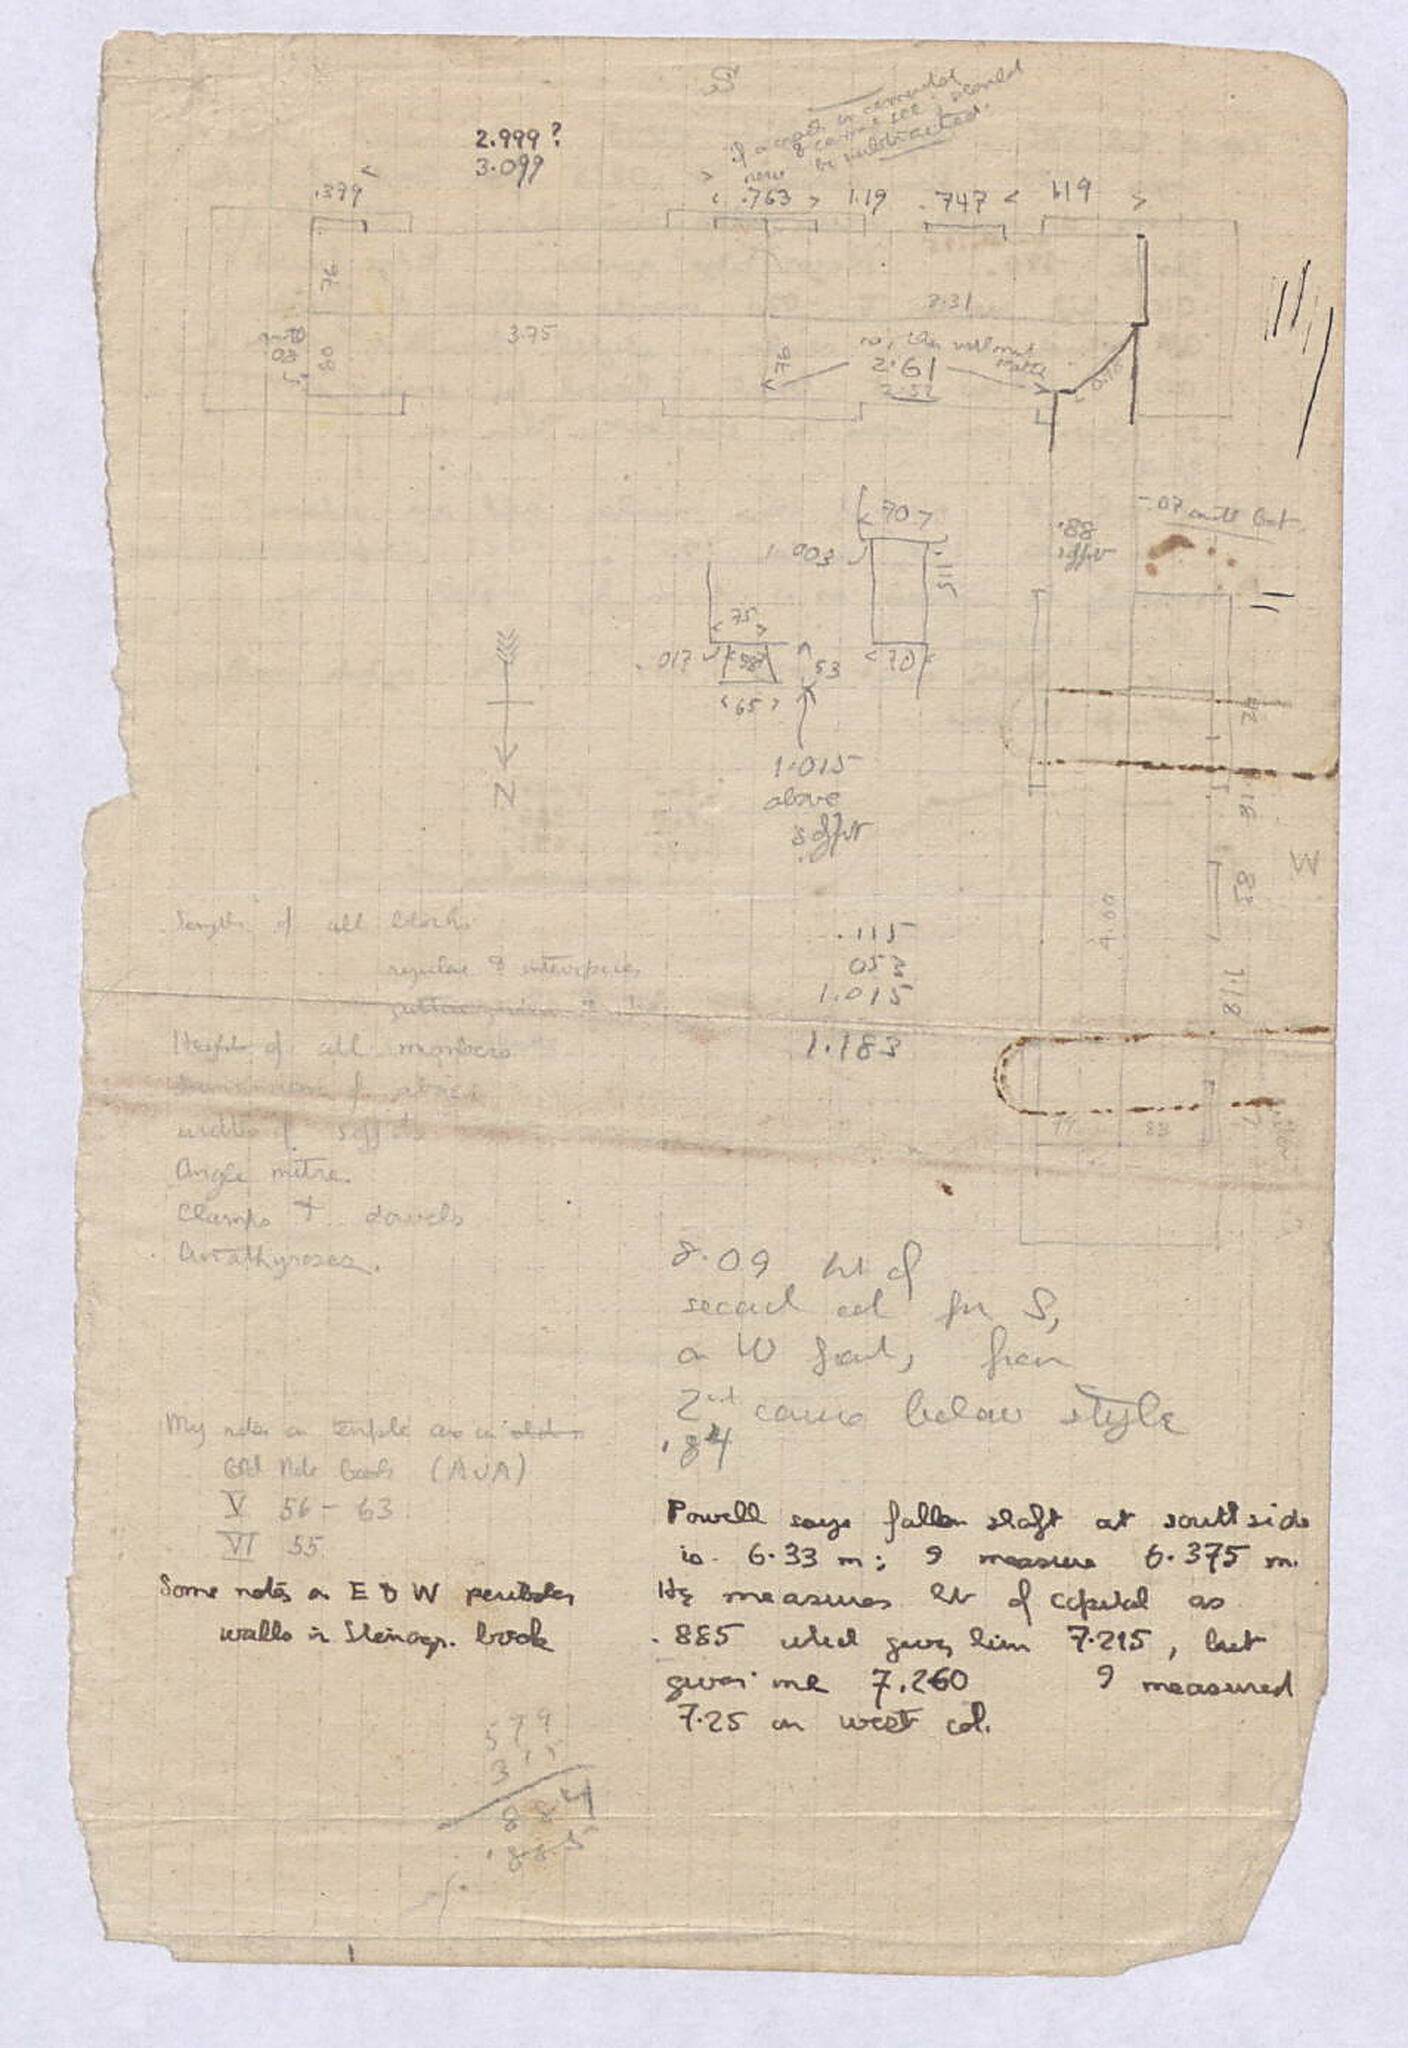 S
2.999?
3.099
if a crack is
be subtracted.
now
.399
.763
1.19
.747
1.19
76
80
3.75
2.31
76
no, this will not
2.61
2.52
70
.003
.115
.88
soffit
-.07 until
75
.017
58
53
65
70
N
1.015
above
soffit
W
.42
1.18
85
4.00
1.18
77
83
Lengths of all blocks
regular &
Heights of all members
widths of soffits
Angle mitre.
Clamps + dowels
Anathyroses.
.115
053
1.015
1.183
8.09 ht of
second col fr S,
on W front, from
2nd course below style
.84
My notes on temple are in old
Note books (AJA)
V 56-63
VI 55
Some notes on E & W peribolos
walls in Stenogr. book
Powell says fallen shaft at south side
is 6.33 m; I measure 6.375 m.
He measures ht of capital as
.885 which gives him 7.215, but
gives me 7.260 I measured
7.25 on west col.
579
315
884
.885